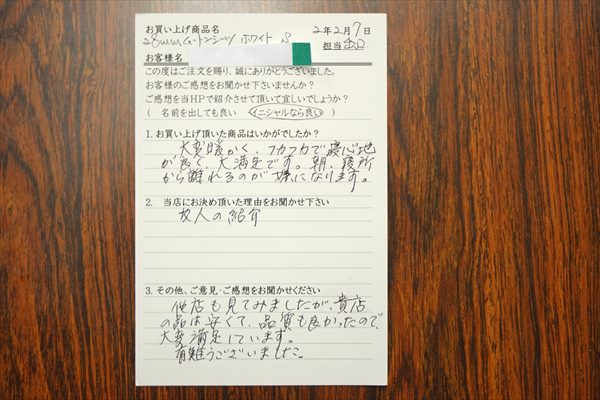 お買い上げ商品名 2年2月7日
28mmムートンシーツ ホワイト S 担当
お客様名
この度はご注文を賜り、誠にありがとうございました。
お客様のご感想をお聞かせ下さいませんか?
ご感想を当HPで紹介させて頂いて宜しいでしょうか?
( 名前を出しても良い イニシャルなら良い )
1. お買い上げ頂いた商品はいかがでしたか?
大変暖かく、フカフカで寝心地
が良く、大満足です。朝、寝所
から離れるのが嫌になります。
2. 当店にお決め頂いた理由をお聞かせ下さい
友人の紹介
3. その他、ご意見・ご感想をお聞かせください
他店も見てみましたが、貴店
の品は安くて、品質も良かったので、
大変満足しています。
有難うございました。